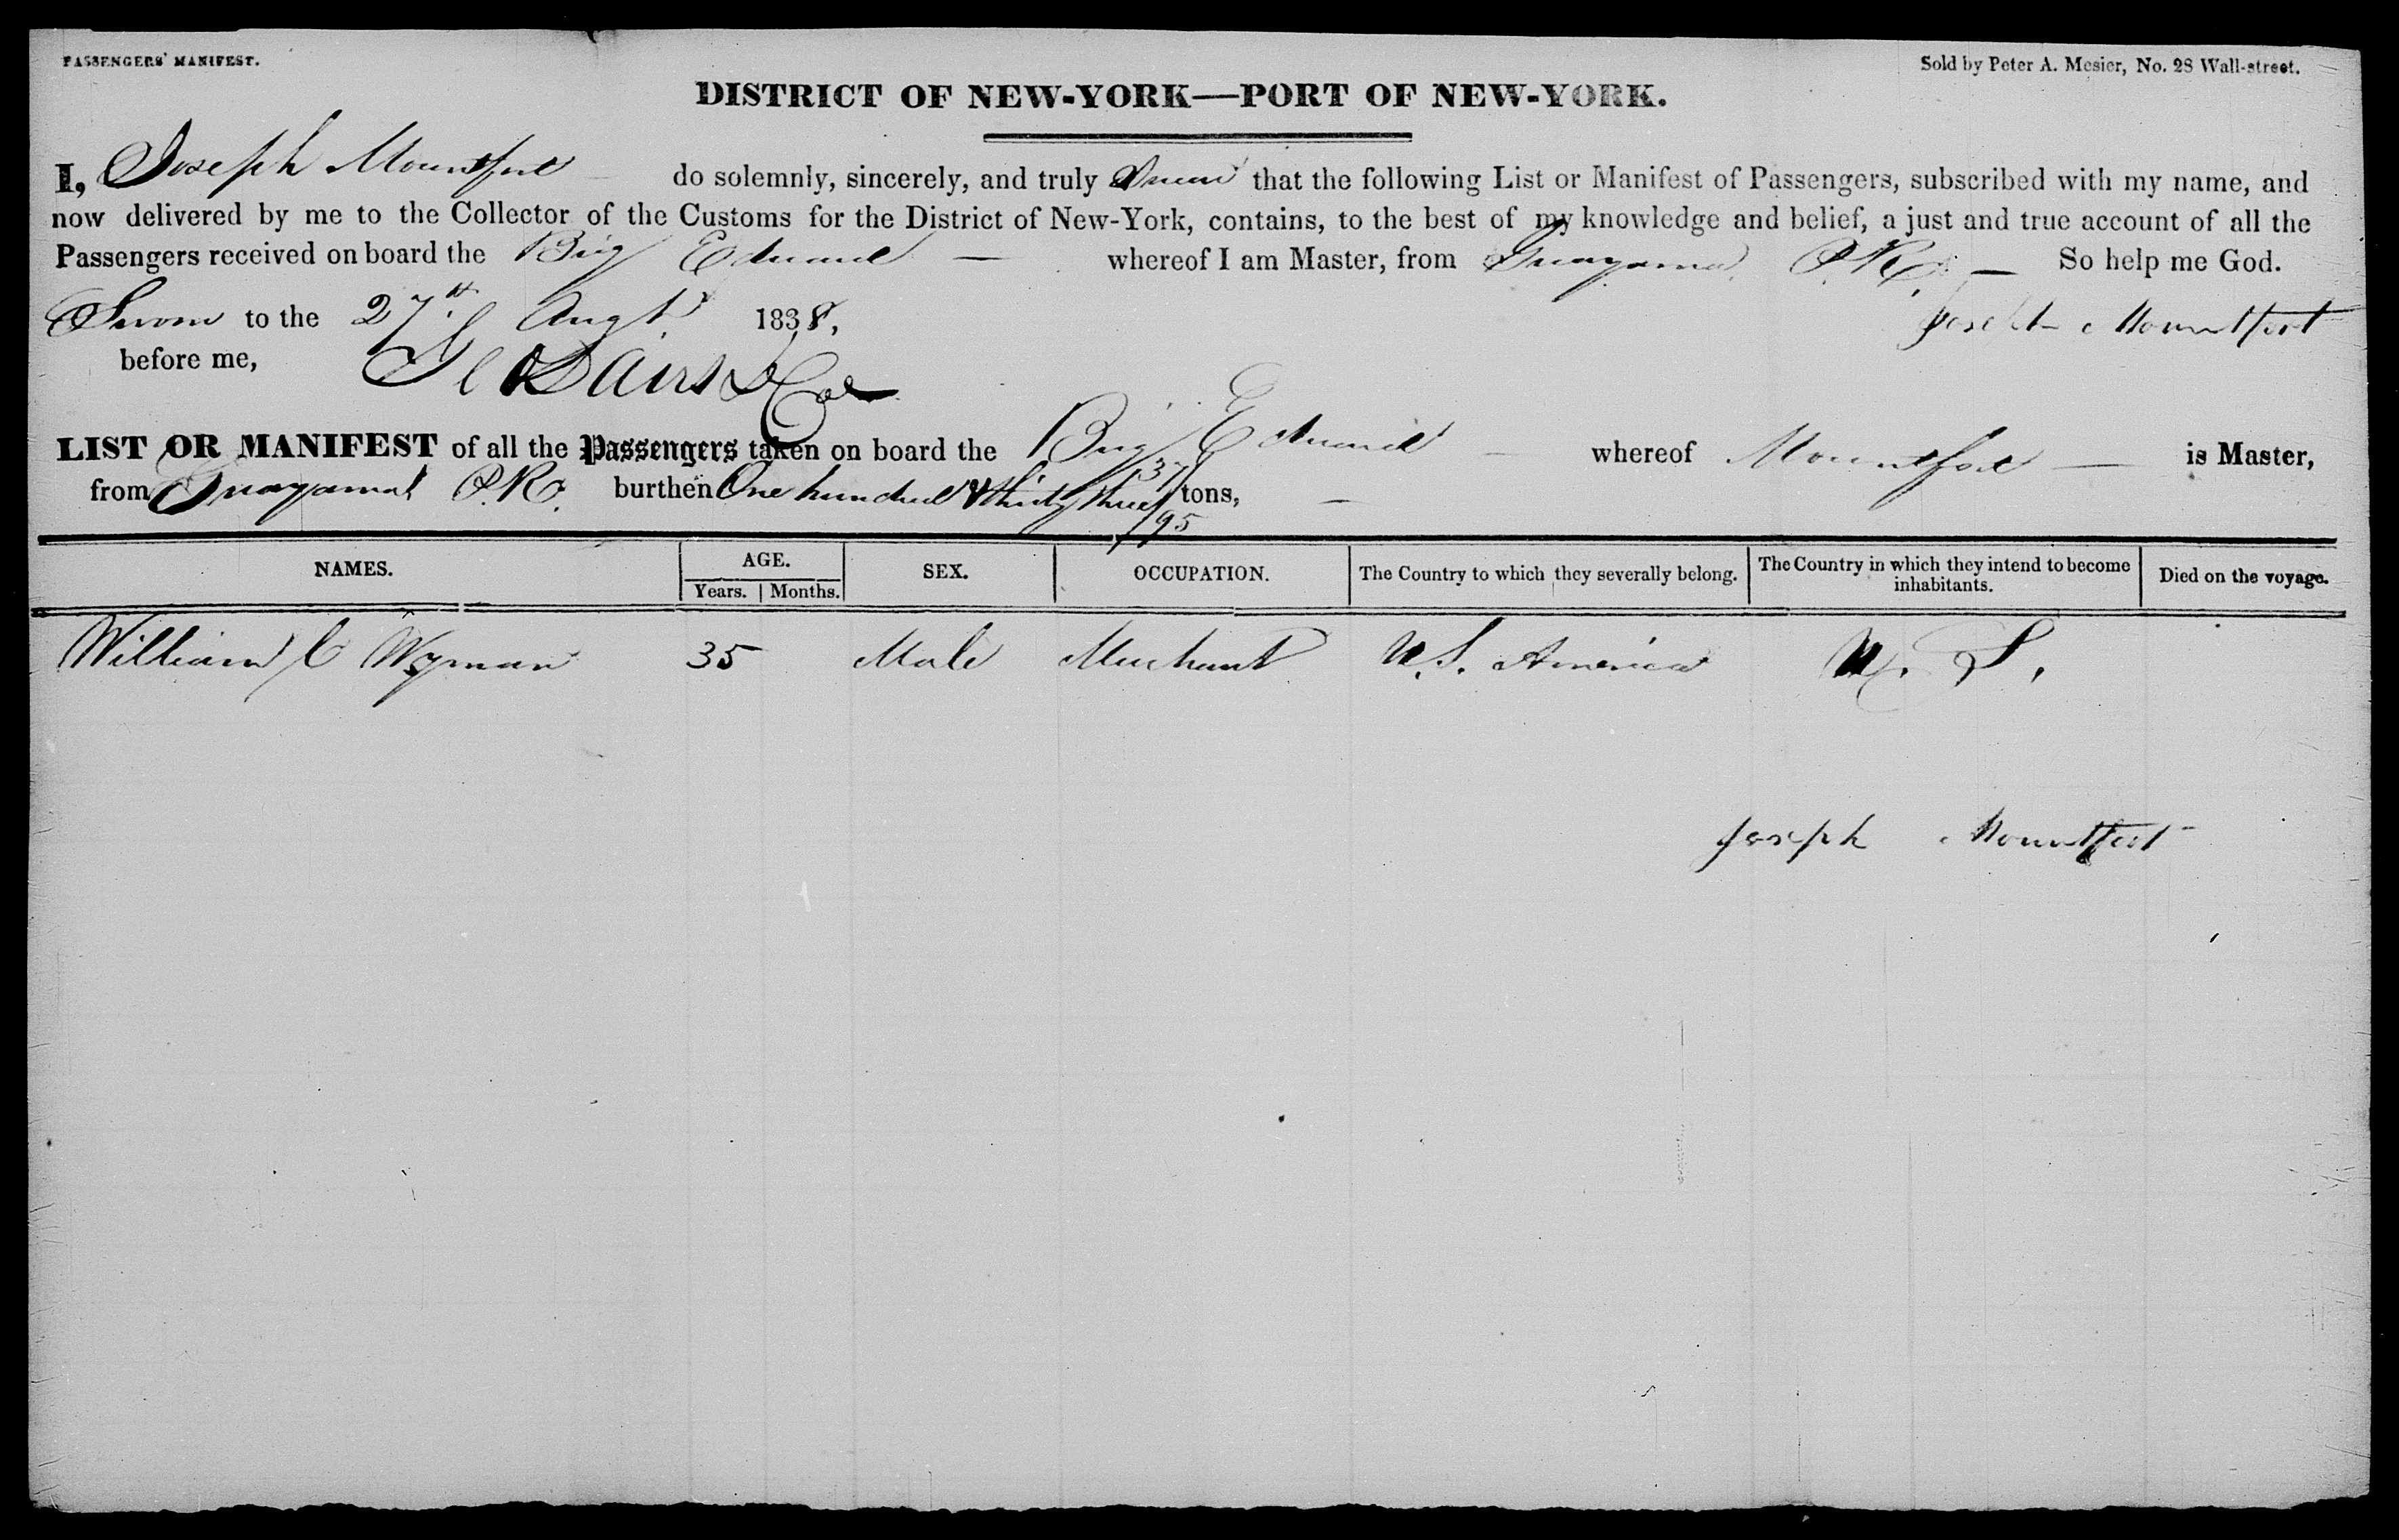 PASSENGERS' MANIFEST.
Sold by Peter A. Mesier, No. 28 Wall-street.
DISTRICT OF NEW-YORK—PORT OF NEW-YORK.
I, Joseph Mountfort do solemnly, sincerely, and truly Swear that the following List or Manifest of Passengers, subscribed with my name, and
now delivered by me to the Collector of the Customs for the District of New-York, contains, to the best of my knowledge and belief, a just and true account of all the
Passengers received on board the Brig Edward — whereof I am Master, from Guayama P.R. — So help me God.
Sworn to the 27th Augt. 1838,
Joseph Mountfort
before me,
LIST OR MANIFEST of all the Passengers taken on board the Brig Edward — whereof Mountfort — is Master,
from Guayama P.R. burthen One hundred & thirty three 37/95 tons, —
NAMES. AGE. SEX. OCCUPATION. The Country to which they severally belong. The Country in which they intend to become inhabitants. Died on the voyage.
Years. Months.
William C Wyman 35 Male Merchant U.S. America U. S.
Joseph Mountfort